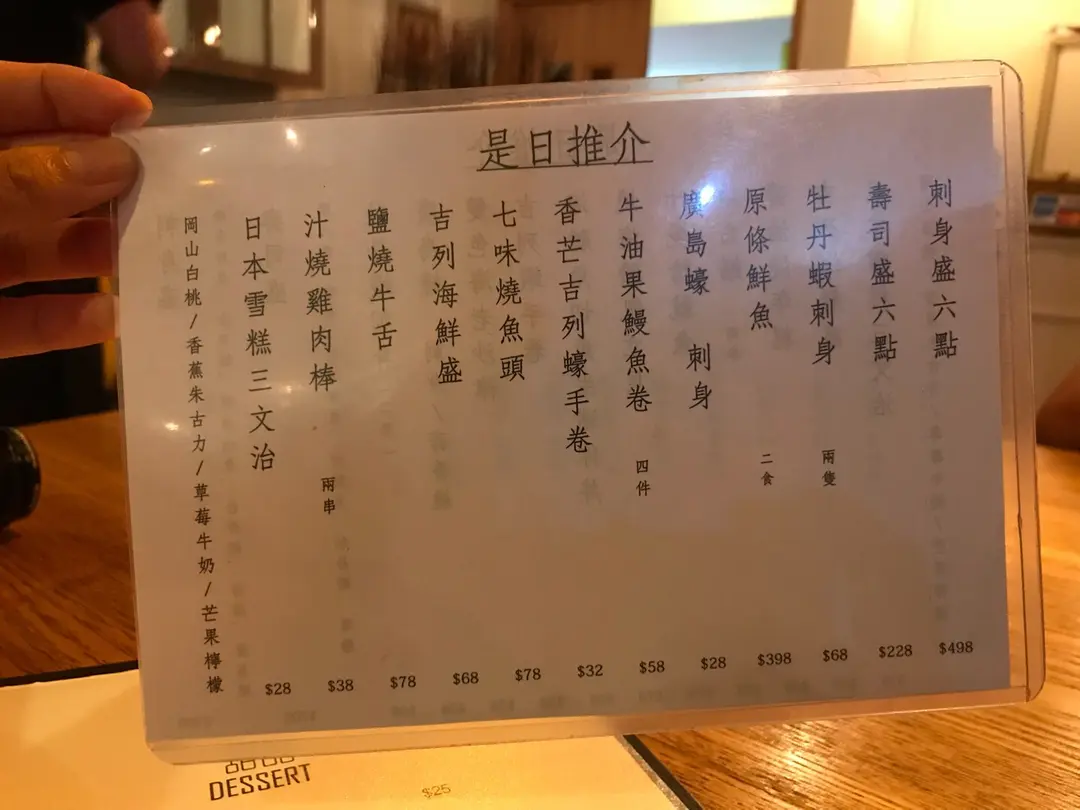 是日推介
刺身盛六點 $498
壽司盛六點 $228
牡丹蝦刺身 兩隻 $68
原條鮮魚 二食 $398
廣島蠔 刺身 $28
牛油果鰻魚卷 四件 $58
香芒吉列蠔手卷 $32
七味燒魚頭 $78
吉列海鮮盛 $68
鹽燒牛舌 $78
汁燒雞肉棒 兩串 $38
日本雪糕三文治 $28
岡山白桃/香蕉朱古力/草莓牛奶/芒果檸檬
DESSERT
$25